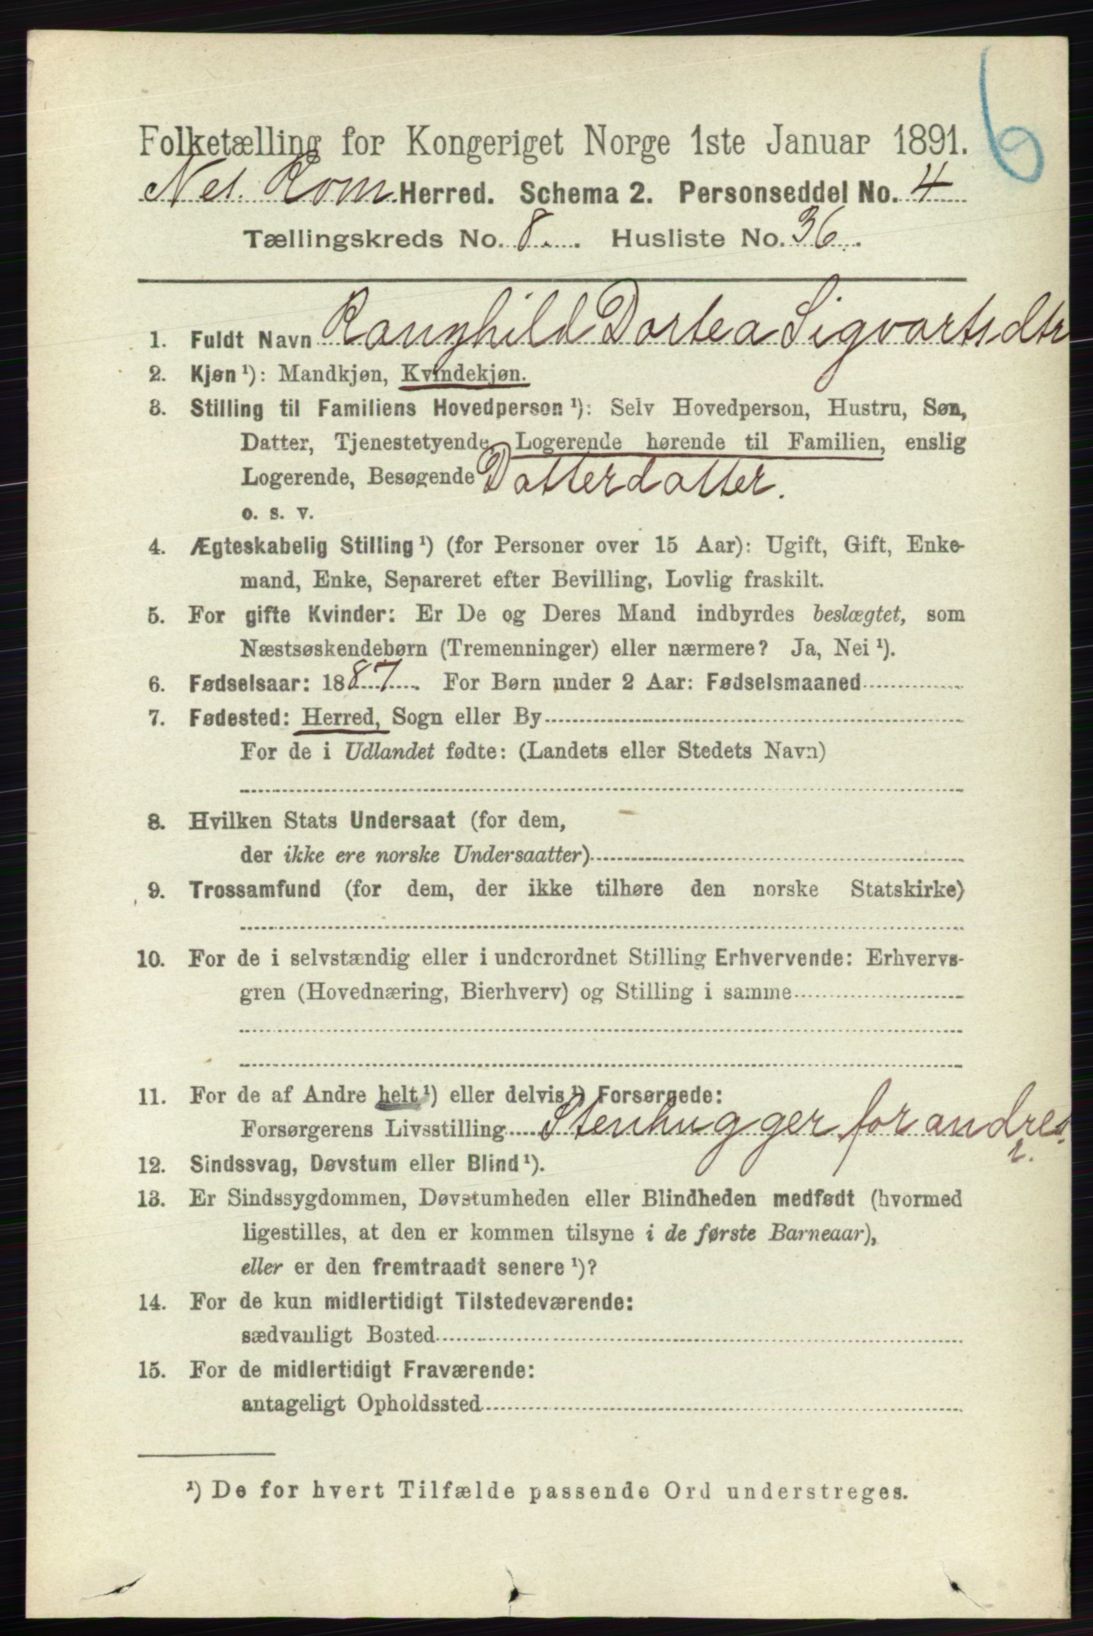 6
Folketælling for Kongeriget Norge 1ste Januar 1891.
Nes. Rom. Herred. Schema 2. Personseddel No. 4
Tællingskreds No. 8. Husliste No. 36.
1. Fuldt Navn Ranghild Dortea Sigvartsdtr
2. Kjøn ¹): Mandkjøn, Kvindekjøn.
3. Stilling til Familiens Hovedperson ¹): Selv Hovedperson, Hustru, Søn,
Datter, Tjenestetyende, Logerende hørende til Familien, enslig
Logerende, Besøgende Datterdatter.
o. s. v.
4. Ægteskabelig Stilling ¹) (for Personer over 15 Aar): Ugift, Gift, Enke-
mand, Enke, Separeret efter Bevilling, Lovlig fraskilt.
5. For gifte Kvinder: Er De og Deres Mand indbyrdes beslægtet, som
Næstsøskendebørn (Tremenninger) eller nærmere? Ja, Nei ¹).
6. Fødselsaar: 1887. For Børn under 2 Aar: Fødselsmaaned
7. Fødested: Herred, Sogn eller By
For de i Udlandet fødte: (Landets eller Stedets Navn)
8. Hvilken Stats Undersaat (for dem,
der ikke ere norske Undersaatter)
9. Trossamfund (for dem, der ikke tilhøre den norske Statskirke)
10. For de i selvstændig eller i underordnet Stilling Erhvervende: Erhvervs-
gren (Hovednæring, Bierhverv) og Stilling i samme
11. For de af Andre helt ¹) eller delvis ¹) Forsørgede:
Forsørgerens Livsstilling Stenhugger for andres
r.
12. Sindssvag, Døvstum eller Blind ¹).
13. Er Sindssygdommen, Døvstumheden eller Blindheden medfødt (hvormed
ligestilles, at den er kommen tilsyne i de første Barneaar),
eller er den fremtraadt senere ¹)?
14. For de kun midlertidigt Tilstedeværende:
sædvanligt Bosted
15. For de midlertidigt Fraværende:
antageligt Opholdssted
¹) De for hvert Tilfælde passende Ord understreges.